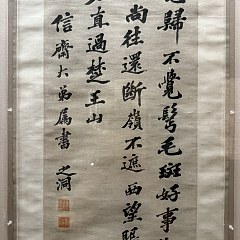 歸不覺鬢毛斑好事
尚往還斷嶺不遮西望眼
直過楚王山
信齋大弟屬書 之洞